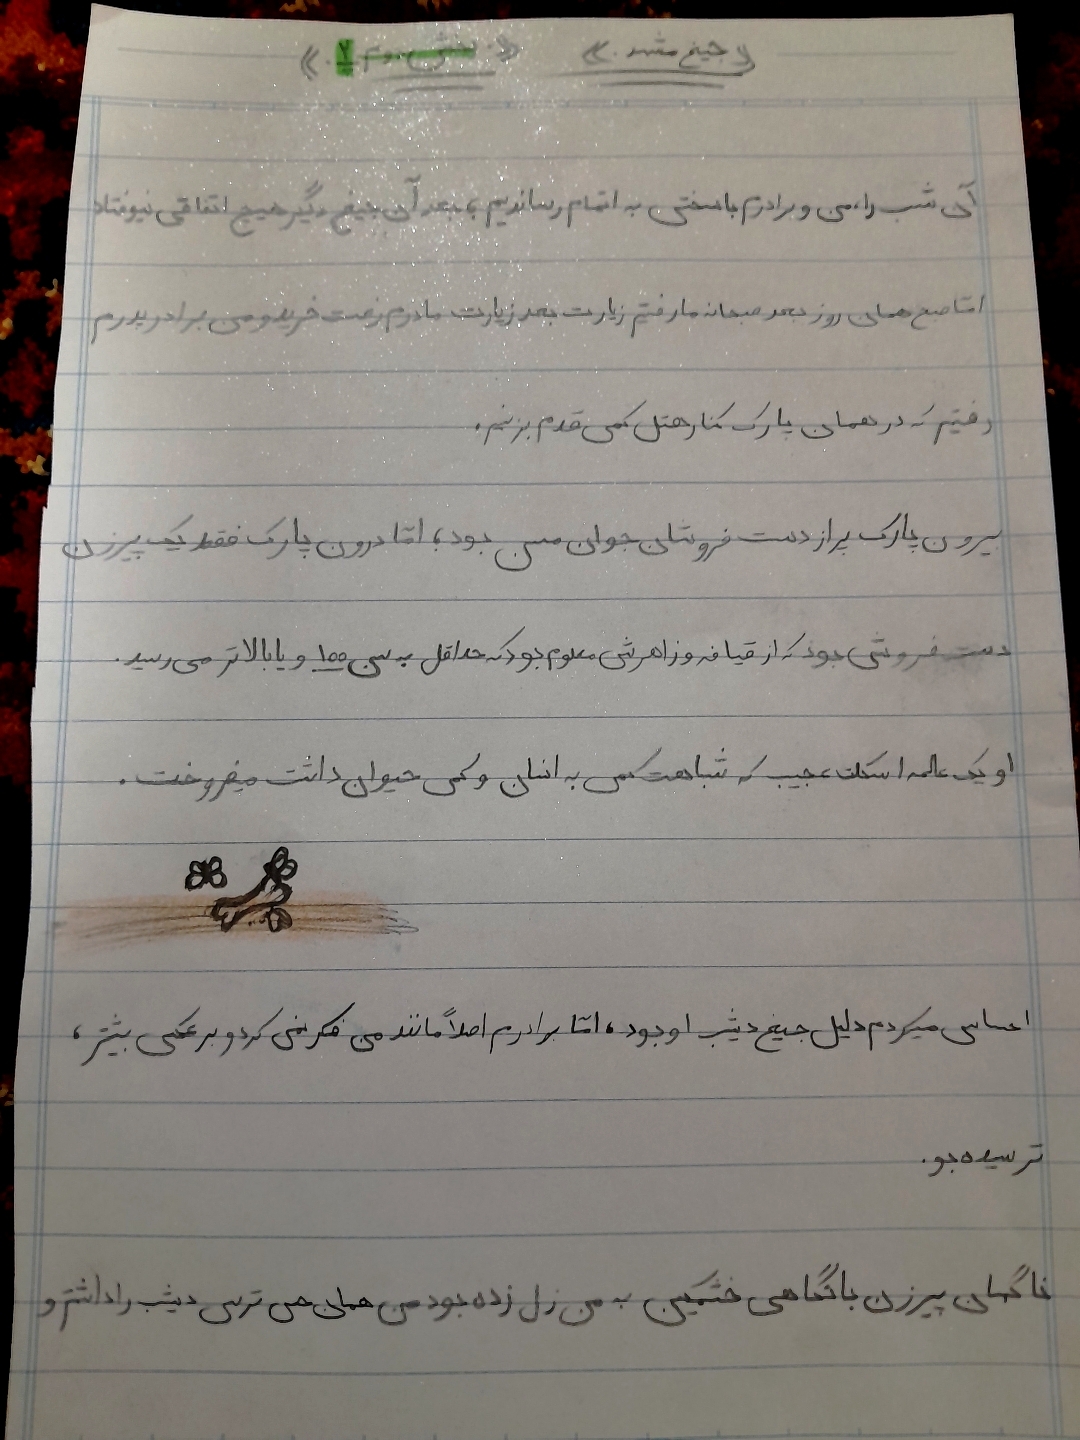 «جیغ مشهد.» «بخش دوم ۲.»
آن شب را، من و برادرم با سختی به اتمام رساندیم، بعد آن جیغ دگیر هیچ اتفاقی نیوفتاد
امّا صبح همان روز بعد صبحانه ما رفتیم زیارت بعد زیارت مادرم رفت خرید و من برادر پدرم
رفتیم که در همان پارک کنار هتل کمی قدم بزنیم.
بیرون پارک پر از دست فروشان جوان مسن بود، امّا درون پارک فقط یک پیرزن
دست فروشی بود که از قیافه و زاهرش معلوم بود که حداقل به سن ۱۰۰ و یا بالاتر می رسید.
او یک عالمه اسکلت عجیب که شباهت کمی به انسان و کمی حیوان داشت میفروخت.
احساس میکردم دلیل جیغ دیشب او بود، امّا برادرم اصلاً مانند من فکر نمی کرد و برعکس بیشتر،
ترسیده بو.
ناگهان پیرزن با نگاهی خشمگین به من زل زده بود من همان حس ترس دیشب را داشتم و